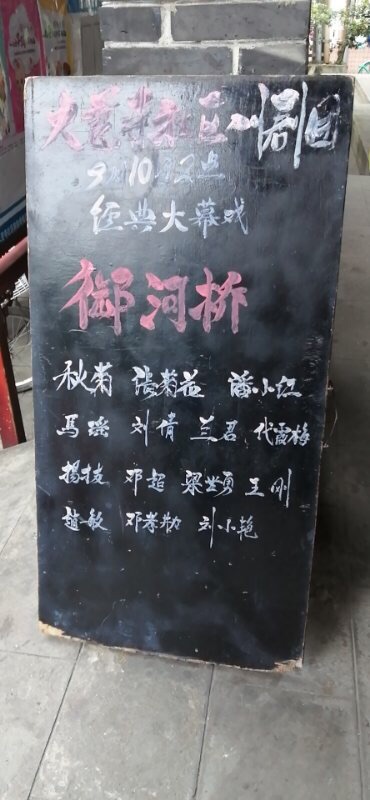 大慈寺社区川剧团
9月10日2点
经典大幕戏
御河桥
秋菊 張菊花 潘小红
馬瑶 刘倩 兰君 代雪梅
揚技 邓超 梁世勇 王刚
趙敏 邓孝勤 刘小艳